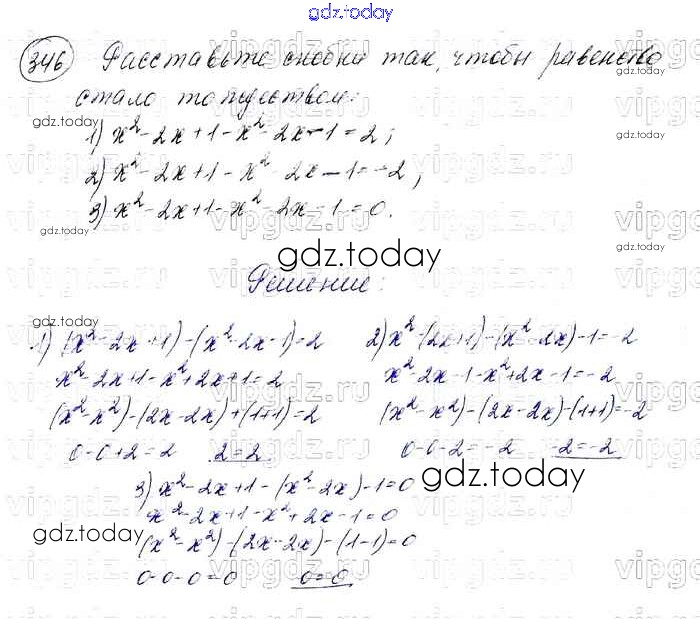 gdz.today
346 Расставьте скобки так, чтобы равенство
стало тождеством:
gdz.today
1) x² - 2x + 1 - x² - 2x - 1 = 2;
gdz.today
2) x² - 2x + 1 - x² - 2x - 1 = -2;
3) x² - 2x + 1 - x² - 2x - 1 = 0.
gdz.today
gdz.today
gdz.today
Решение:
gdz.today
gdz.today
1) (x² - 2x + 1) - (x² - 2x - 1) = 2
2) x² - (2x + 1) - (x² - 2x) - 1 = -2
x² - 2x + 1 - x² + 2x + 1 = 2
x² - 2x - 1 - x² + 2x - 1 = -2
(x² - x²) - (2x - 2x) + (1 + 1) = 2
(x² - x²) - (2x - 2x) - (1 + 1) = -2
0 - 0 + 2 = 2 2 = 2
0 - 0 - 2 = -2 -2 = -2
gdz.today
3) x² - 2x + 1 - (x² - 2x) - 1 = 0
x² - 2x + 1 - x² + 2x - 1 = 0
gdz.today
(x² - x²) - (2x - 2x) - (1 - 1) = 0
0 - 0 - 0 = 0 0 = 0
vipgdz.ru